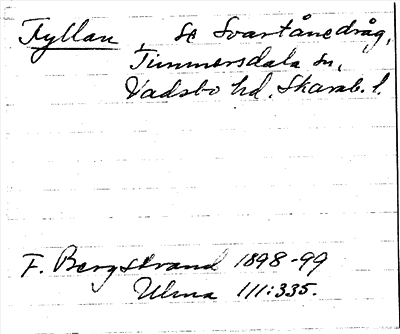 Fyllan, Se Svartånedråg,
Timmersdala sn,
Vadsbo hd, Skarab. l.
F. Bergstrand 1898-99
Ulma 111:335.